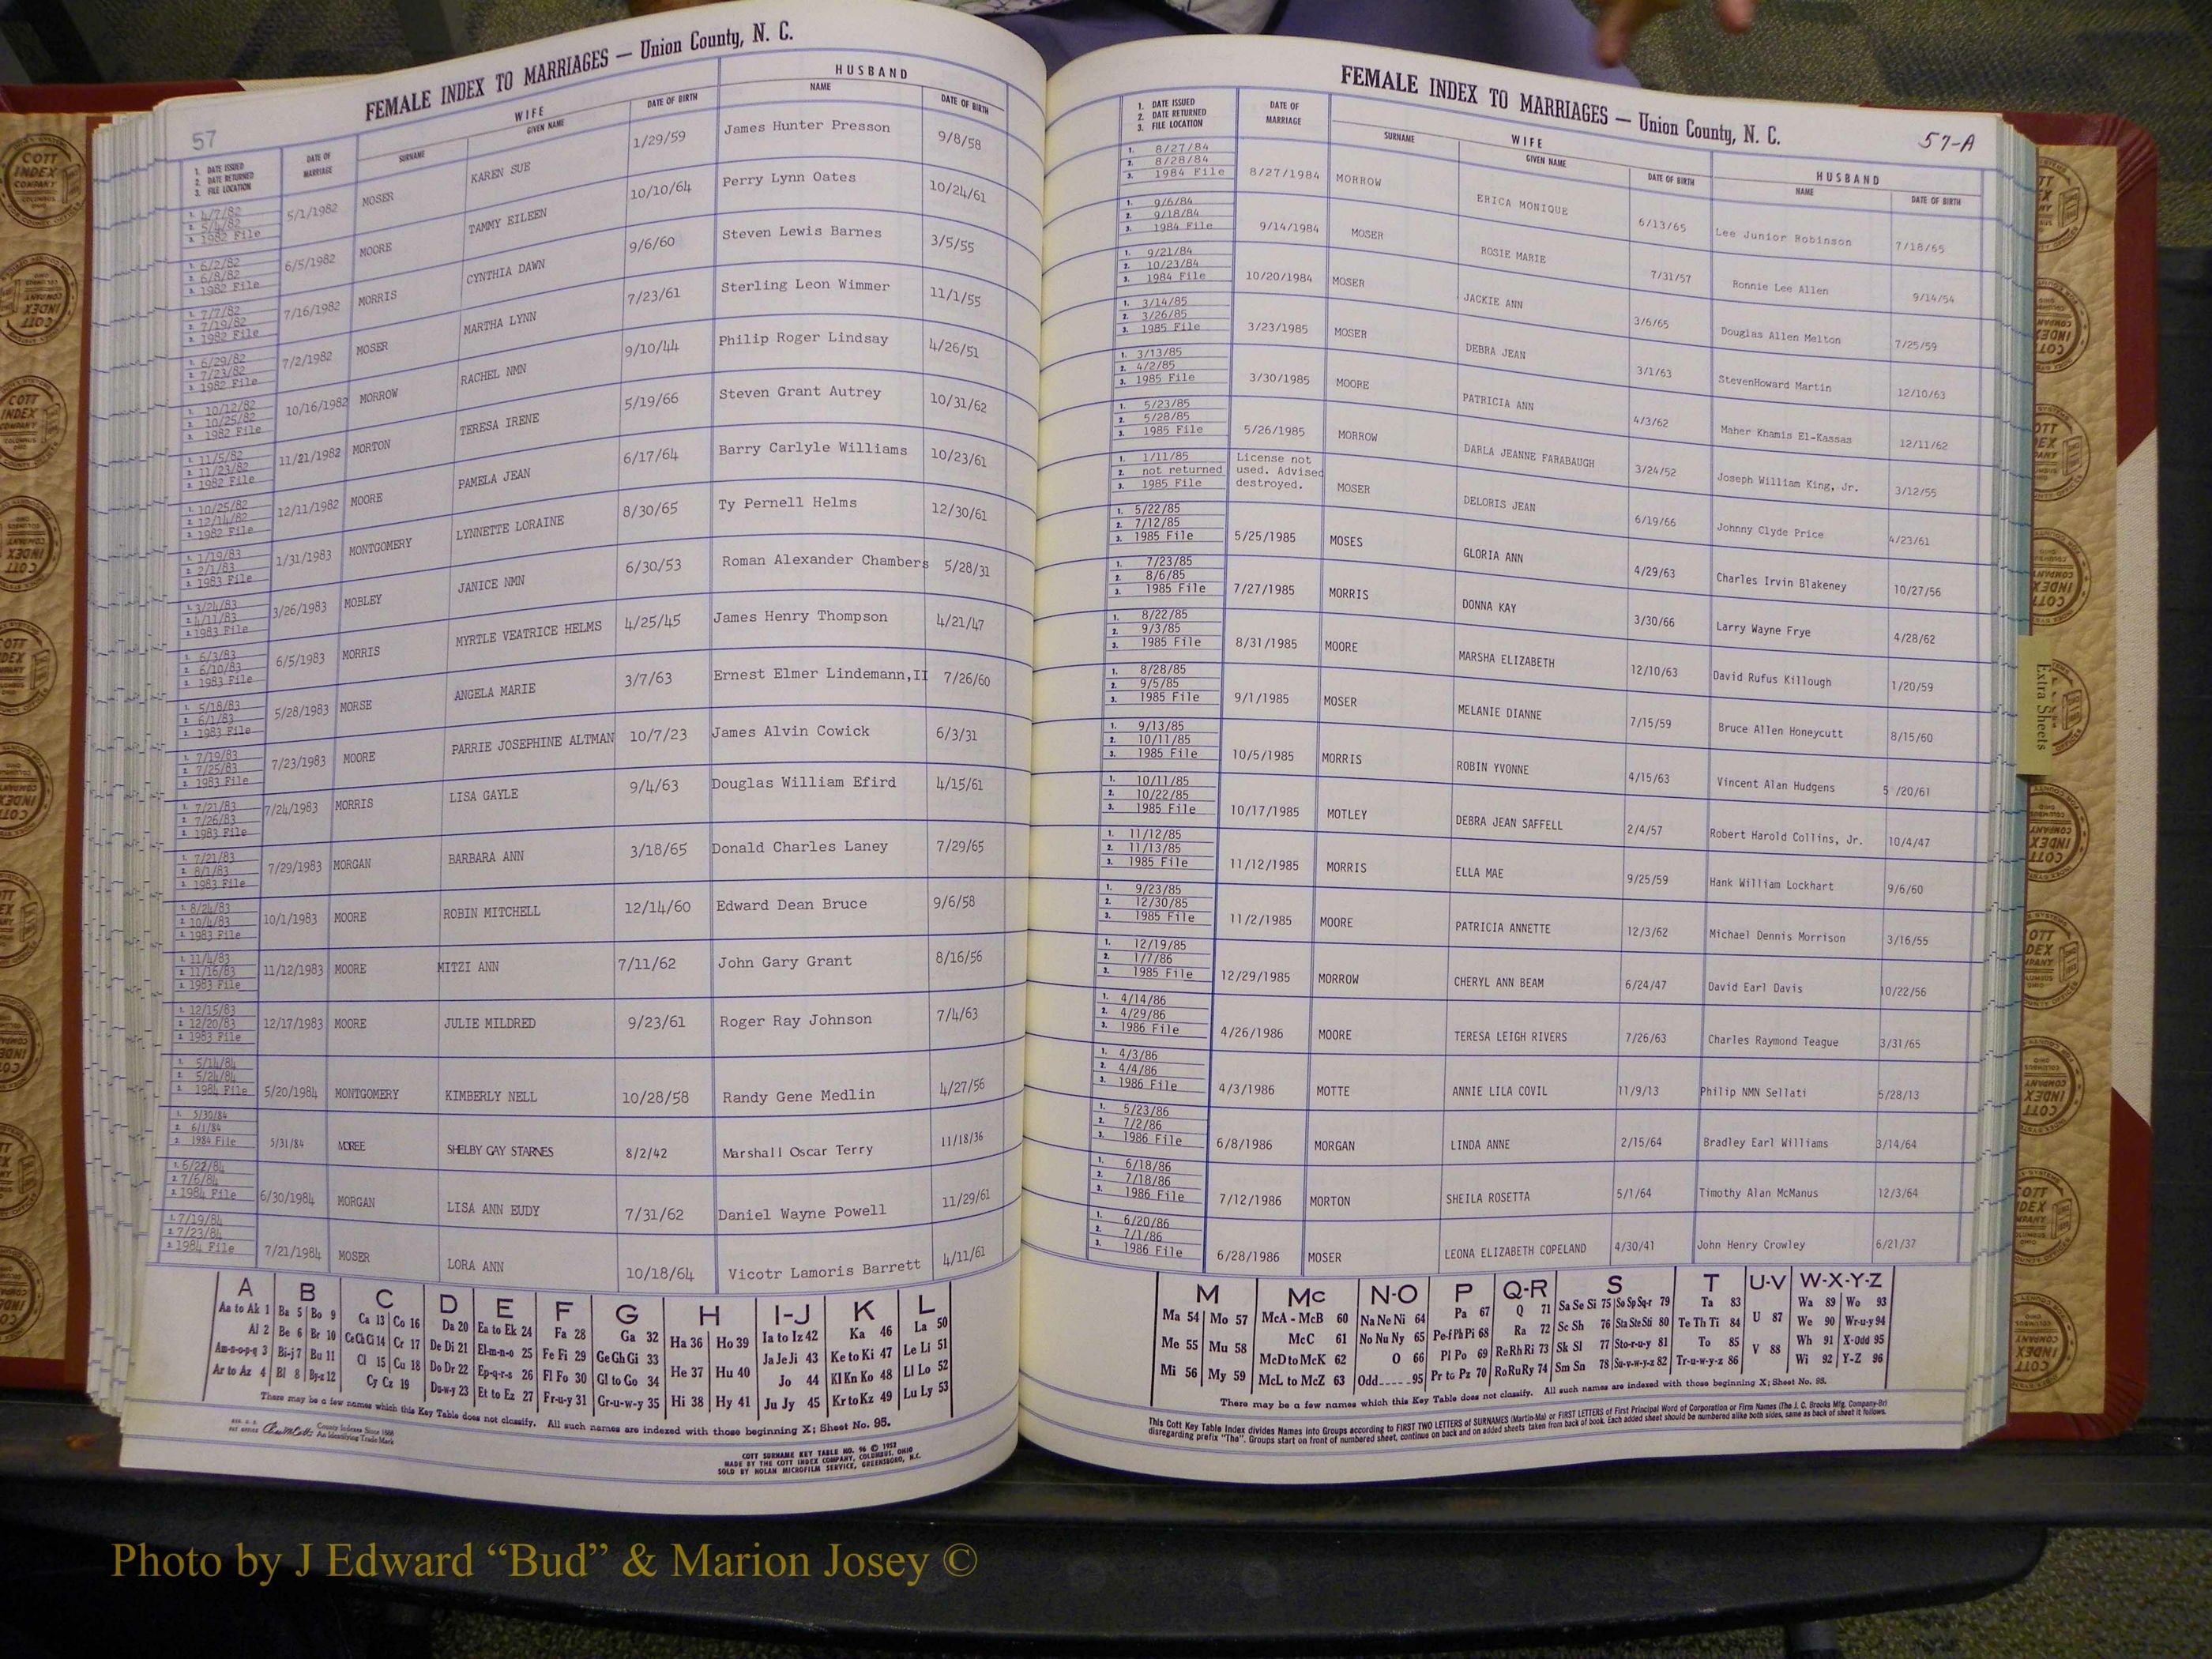 57
FEMALE INDEX TO MARRIAGES — Union County, N. C.
1. DATE ISSUED 2. DATE RETURNED 3. FILE LOCATION | DATE OF MARRIAGE | WIFE SURNAME | GIVEN NAME | DATE OF BIRTH | HUSBAND NAME | DATE OF BIRTH
1. 4/7/82 2. 5/4/82 3. 1982 File 5/1/1982 MOSER KAREN SUE 1/29/59 James Hunter Presson 9/8/58
1. 6/2/82 2. 6/8/82 3. 1982 File 6/5/1982 MOORE TAMMY EILEEN 10/10/64 Perry Lynn Oates 10/24/61
1. 7/7/82 2. 7/19/82 3. 1982 File 7/16/1982 MORRIS CYNTHIA DAWN 9/6/60 Steven Lewis Barnes 3/5/55
1. 6/29/82 2. 7/23/82 3. 1982 File 7/2/1982 MOSER MARTHA LYNN 7/23/61 Sterling Leon Wimmer 11/1/55
1. 10/12/82 2. 10/25/82 3. 1982 File 10/16/1982 MORROW RACHEL NMN 9/10/44 Philip Roger Lindsay 4/26/51
1. 11/5/82 2. 11/23/82 3. 1982 File 11/21/1982 MORTON TERESA IRENE 5/19/66 Steven Grant Autrey 10/31/62
1. 10/25/82 2. 12/14/82 3. 1982 File 12/11/1982 MOORE PAMELA JEAN 6/17/64 Barry Carlyle Williams 10/23/61
1. 1/19/83 2. 2/1/83 3. 1983 File 1/31/1983 MONTGOMERY LYNNETTE LORAINE 8/30/65 Ty Pernell Helms 12/30/61
1. 3/24/83 2. 4/11/83 3. 1983 File 3/26/1983 MOBLEY JANICE NMN 6/30/53 Roman Alexander Chambers 5/28/31
1. 6/3/83 2. 6/10/83 3. 1983 File 6/5/1983 MORRIS MYRTLE VEATRICE HELMS 4/25/45 James Henry Thompson 4/21/47
1. 5/18/83 2. 6/1/83 3. 1983 File 5/28/1983 MORSE ANGELA MARIE 3/7/63 Ernest Elmer Lindemann,II 7/26/60
1. 7/19/83 2. 7/25/83 3. 1983 File 7/23/1983 MOORE PARRIE JOSEPHINE ALTMAN 10/7/23 James Alvin Cowick 6/3/31
1. 7/21/83 2. 7/26/83 3. 1983 File 7/24/1983 MORRIS LISA GAYLE 9/4/63 Douglas William Efird 4/15/61
1. 7/21/83 2. 8/1/83 3. 1983 File 7/29/1983 MORGAN BARBARA ANN 3/18/65 Donald Charles Laney 7/29/65
1. 8/24/83 2. 10/4/83 3. 1983 File 10/1/1983 MOORE ROBIN MITCHELL 12/14/60 Edward Dean Bruce 9/6/58
1. 11/4/83 2. 11/16/83 3. 1983 File 11/12/1983 MOORE MITZI ANN 7/11/62 John Gary Grant 8/16/56
1. 12/15/83 2. 12/20/83 3. 1983 File 12/17/1983 MOORE JULIE MILDRED 9/23/61 Roger Ray Johnson 7/4/63
1. 5/14/84 2. 5/24/84 3. 1984 File 5/20/1984 MONTGOMERY KIMBERLY NELL 10/28/58 Randy Gene Medlin 4/27/56
1. 5/30/84 2. 6/1/84 3. 1984 File 5/31/84 MOREE SHELBY GAY STARNES 8/2/42 Marshall Oscar Terry 11/18/36
1. 6/22/84 2. 7/6/84 3. 1984 File 6/30/1984 MORGAN LISA ANN EUDY 7/31/62 Daniel Wayne Powell 11/29/61
1. 7/19/84 2. 7/23/84 3. 1984 File 7/21/1984 MOSER LORA ANN 10/18/64 Vicotr Lamoris Barrett 4/11/61
A B C D E F G H I-J K L
Aa to Ak 1 Ba 5 Bo 9 Ca 13 Co 16 Da 20 Ea to Ek 24 Fa 28 Ga 32 Ha 36 Ho 39 Ia to Iz 42 Ka 46 La 50
Al 2 Be 6 Br 10 Ce Ch Ci 14 Cr 17 De Di 21 El-m-n-o 25 Fe Fi 29 Ge Gh Gi 33 He 37 Hu 40 Ja Je Ji 43 Ke to Ki 47 Le Li 51
Am-n-o-p-q 3 Bi-j 7 Bu 11 Cl 15 Cu 18 Do Dr 22 Ep-q-r-s 26 Fl Fo 30 Gl to Go 34 Hi 38 Hy 41 Jo 44 Kl Kn Ko 48 Ll Lo 52
Ar to Az 4 Bl 8 By-z 12 Cy Cz 19 Du-w-y 23 Et to Ez 27 Fr-u-y 31 Gr-u-w-y 35 Ju Jy 45 Kr to Kz 49 Lu Ly 53
There may be a few names which this Key Table does not classify. All such names are indexed with those beginning X; Sheet No. 95.
County Indexes Since 1888
An Identifying Trade Mark
COTT SURNAME KEY TABLE NO. 96 © 1952
MADE BY THE COTT INDEX COMPANY, COLUMBUS, OHIO
SOLD BY NOLAN MICROFILM SERVICE, GREENSBORO, N.C.
FEMALE INDEX TO MARRIAGES — Union County, N. C.
57-A
1. DATE ISSUED 2. DATE RETURNED 3. FILE LOCATION | DATE OF MARRIAGE | WIFE SURNAME | GIVEN NAME | DATE OF BIRTH | HUSBAND NAME | DATE OF BIRTH
1. 8/27/84 2. 8/28/84 3. 1984 File 8/27/1984 MORROW ERICA MONIQUE 6/13/65 Lee Junior Robinson 7/18/65
1. 9/6/84 2. 9/18/84 3. 1984 File 9/14/1984 MOSER ROSIE MARIE 7/31/57 Ronnie Lee Allen 9/14/54
1. 9/21/84 2. 10/23/84 3. 1984 File 10/20/1984 MOSER JACKIE ANN 3/6/65 Douglas Allen Melton 7/25/59
1. 3/14/85 2. 3/26/85 3. 1985 File 3/23/1985 MOSER DEBRA JEAN 3/1/63 StevenHoward Martin 12/10/63
1. 3/13/85 2. 4/2/85 3. 1985 File 3/30/1985 MOORE PATRICIA ANN 4/3/62 Maher Khamis El-Kassas 12/11/62
1. 5/23/85 2. 5/28/85 3. 1985 File 5/26/1985 MORROW DARLA JEANNE FARABAUGH 3/24/52 Joseph William King, Jr. 3/12/55
1. 1/11/85 2. not returned 3. 1985 File License not used. Advised destroyed. MOSER DELORIS JEAN 6/19/66 Johnny Clyde Price 4/23/61
1. 5/22/85 2. 7/12/85 3. 1985 File 5/25/1985 MOSES GLORIA ANN 4/29/63 Charles Irvin Blakeney 10/27/56
1. 7/23/85 2. 8/6/85 3. 1985 File 7/27/1985 MORRIS DONNA KAY 3/30/66 Larry Wayne Frye 4/28/62
1. 8/22/85 2. 9/3/85 3. 1985 File 8/31/1985 MOORE MARSHA ELIZABETH 12/10/63 David Rufus Killough 1/20/59
1. 8/28/85 2. 9/5/85 3. 1985 File 9/1/1985 MOSER MELANIE DIANNE 7/15/59 Bruce Allen Honeycutt 8/15/60
1. 9/13/85 2. 10/11/85 3. 1985 File 10/5/1985 MORRIS ROBIN YVONNE 4/15/63 Vincent Alan Hudgens 5 /20/61
1. 10/11/85 2. 10/22/85 3. 1985 File 10/17/1985 MOTLEY DEBRA JEAN SAFFELL 2/4/57 Robert Harold Collins, Jr. 10/4/47
1. 11/12/85 2. 11/13/85 3. 1985 File 11/12/1985 MORRIS ELLA MAE 9/25/59 Hank William Lockhart 9/6/60
1. 9/23/85 2. 12/30/85 3. 1985 File 11/2/1985 MOORE PATRICIA ANNETTE 12/3/62 Michael Dennis Morrison 3/16/55
1. 12/19/85 2. 1/7/86 3. 1985 File 12/29/1985 MORROW CHERYL ANN BEAM 6/24/47 David Earl Davis 10/22/56
1. 4/14/86 2. 4/29/86 3. 1986 File 4/26/1986 MOORE TERESA LEIGH RIVERS 7/26/63 Charles Raymond Teague 3/31/65
1. 4/3/86 2. 4/4/86 3. 1986 File 4/3/1986 MOTTE ANNIE LILA COVIL 11/9/13 Philip NMN Sellati 5/28/13
1. 5/23/86 2. 7/2/86 3. 1986 File 6/8/1986 MORGAN LINDA ANNE 2/15/64 Bradley Earl Williams 3/14/64
1. 6/18/86 2. 7/18/86 3. 1986 File 7/12/1986 MORTON SHEILA ROSETTA 5/1/64 Timothy Alan McManus 12/3/64
1. 6/20/86 2. 7/1/86 3. 1986 File 6/28/1986 MOSER LEONA ELIZABETH COPELAND 4/30/41 John Henry Crowley 6/21/37
M Mc N-O P Q-R S T U-V W-X-Y-Z
Ma 54 Mo 57 McA - McB 60 Na Ne Ni 64 Pa 67 Q 71 Sa Se Si 75 So Sp Sq-r 79 Ta 83 U 87 Wa 89 Wo 93
Me 55 Mu 58 McC 61 No Nu Ny 65 Pe-f Ph Pi 68 Ra 72 Sc Sh 76 Sta Ste Sti 80 Te Th Ti 84 V 88 We 90 Wr-u-y 94
Mi 56 My 59 McD to McK 62 O 66 Pl Po 69 Re Rh Ri 73 Sk Sl 77 Sto-r-u-y 81 To 85 Wh 91 X-Odd 95
McL to McZ 63 Odd-----95 Pr to Pz 70 Ro Ru Ry 74 Sm Sn 78 Su-v-w-y-z 82 Tr-u-w-y-z 86 Wi 92 Y-Z 96
There may be a few names which this Key Table does not classify. All such names are indexed with those beginning X; Sheet No. 95.
This Cott Key Table Index divides Names into Groups according to FIRST TWO LETTERS of SURNAMES (Martin-Ma) or FIRST LETTERS of First Principal Word of Corporation or Firm Names (The J. C. Brooks Mfg. Company-Br)
disregarding prefix "The". Groups start on front of numbered sheet, continue on back and on added sheets taken from back of book. Each added sheet should be numbered alike both sides, same as back of sheet it follows.
Extra Sheets
COTT INDEX COMPANY
Photo by J Edward “Bud” & Marion Josey ©